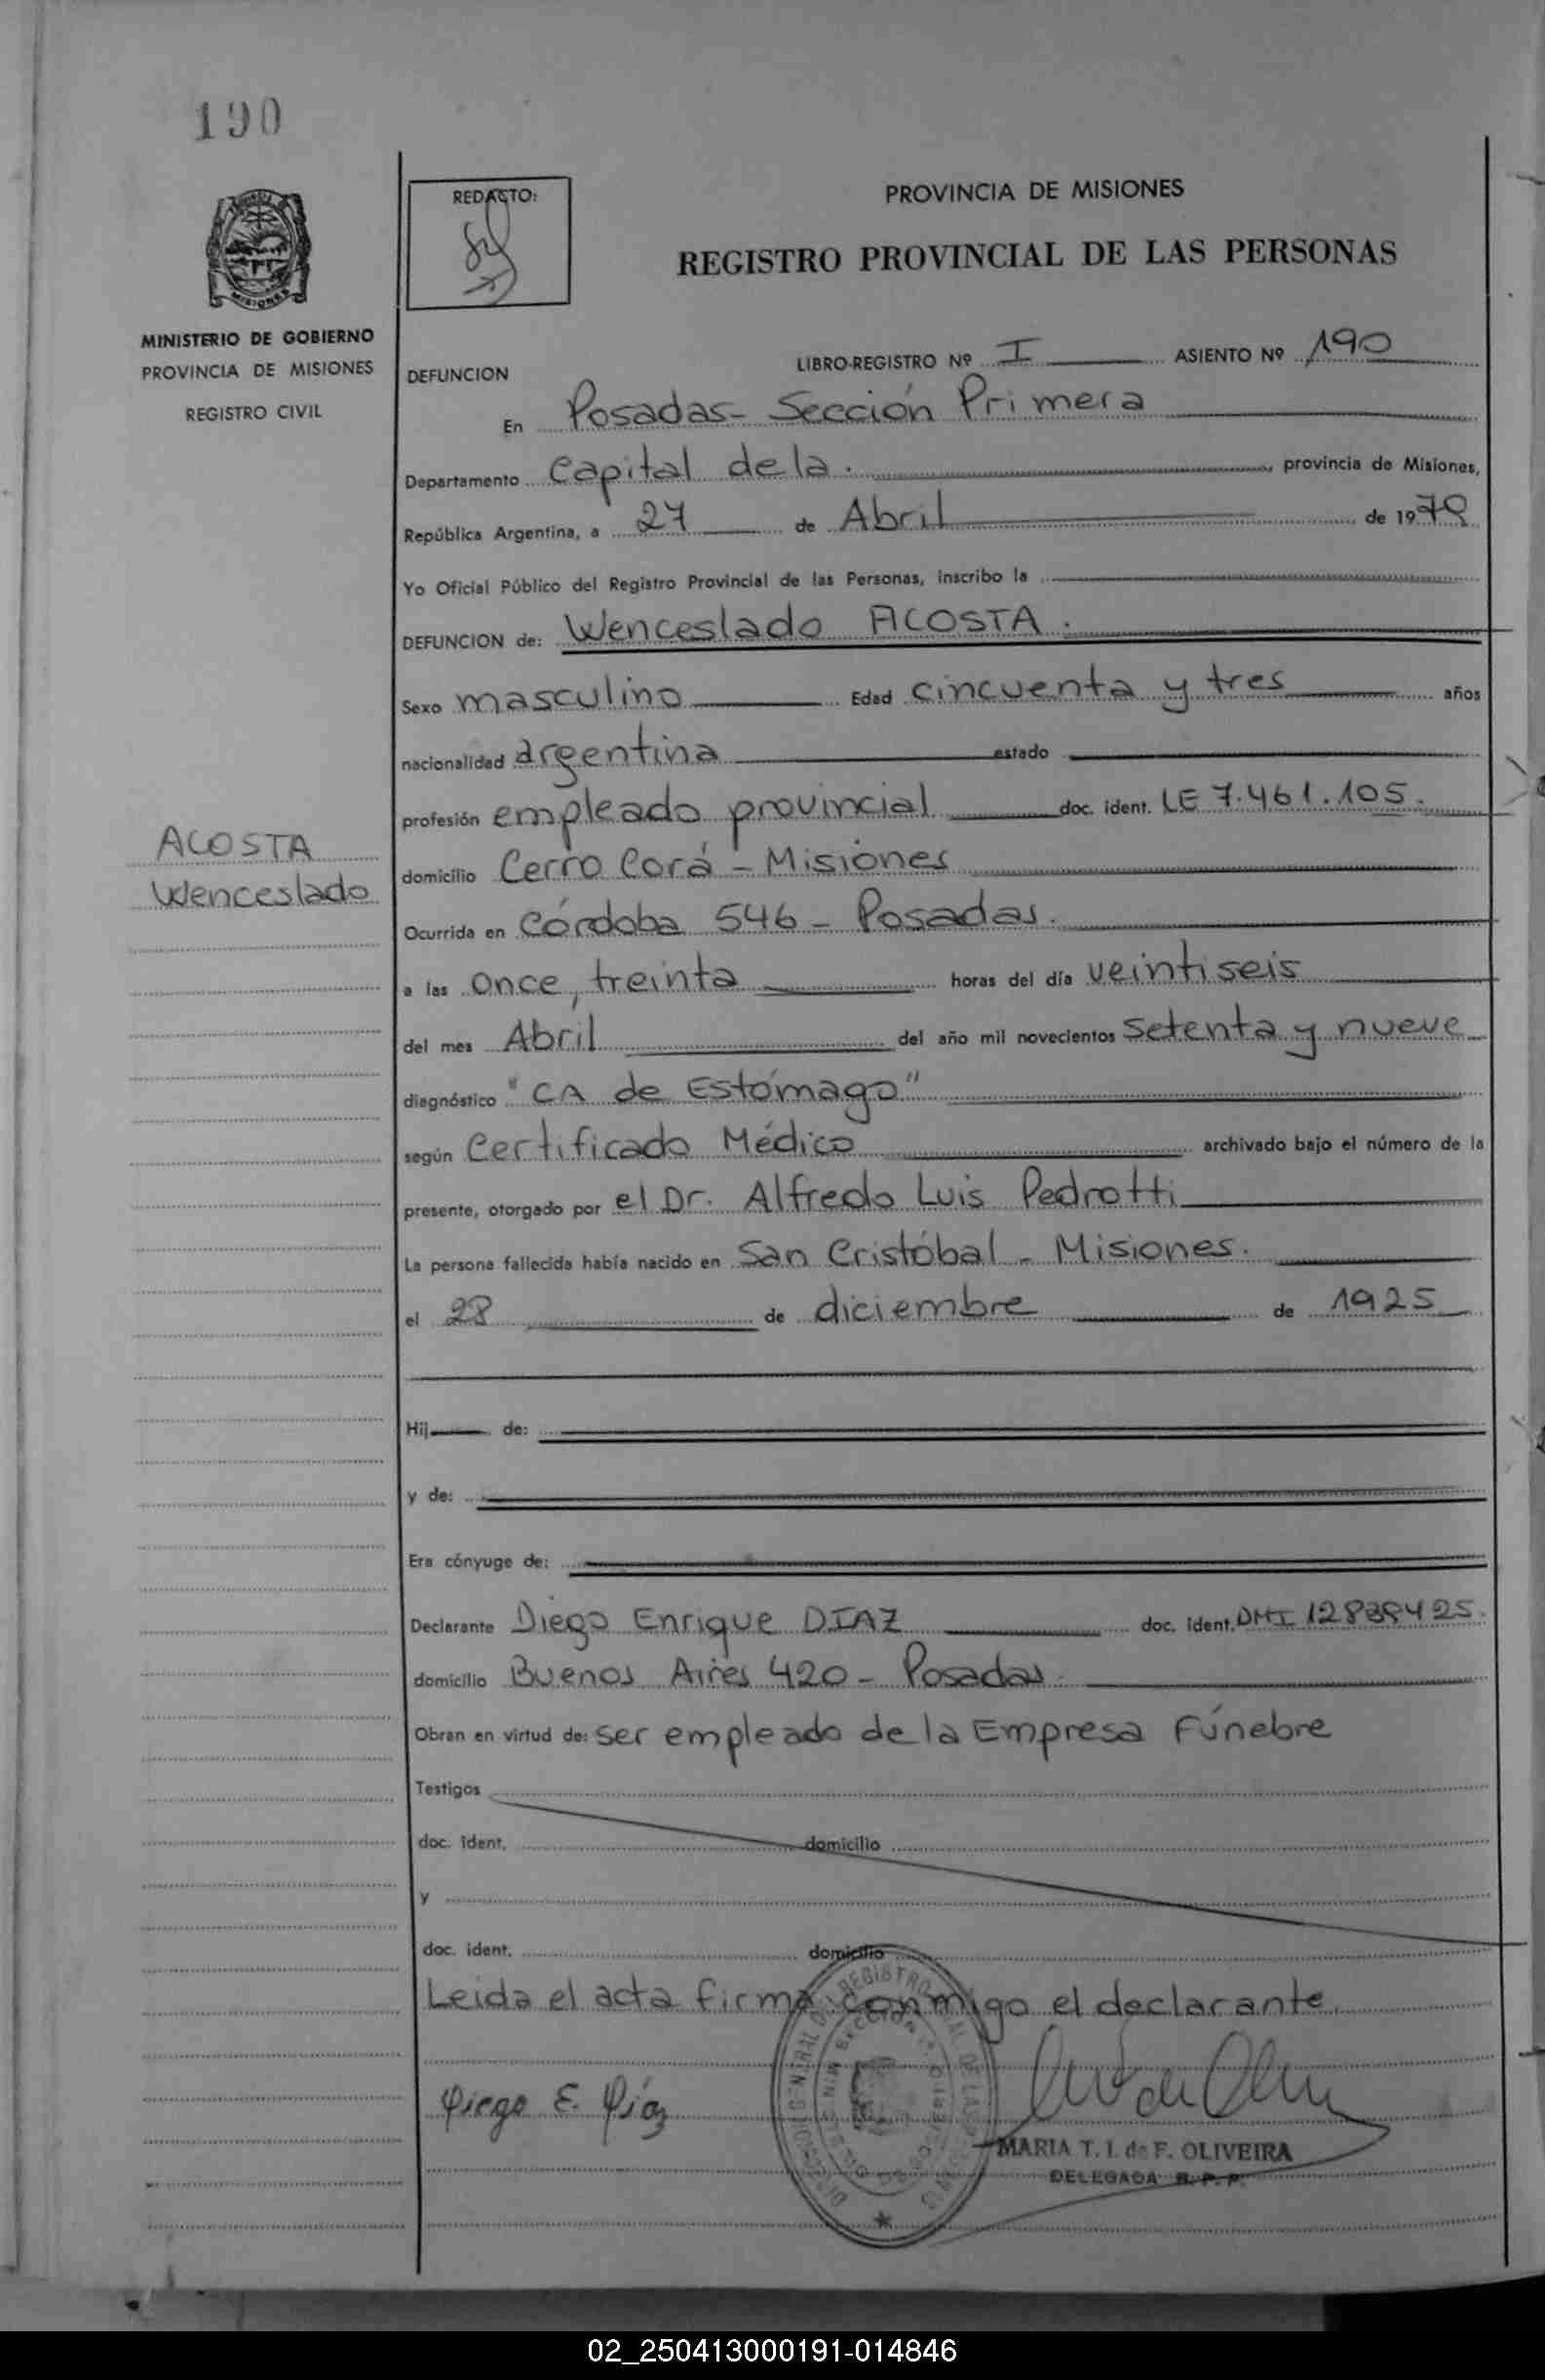 190
MINISTERIO DE GOBIERNO
PROVINCIA DE MISIONES
REGISTRO CIVIL
ACOSTA
Wenceslado
REDACTO:
PROVINCIA DE MISIONES
REGISTRO PROVINCIAL DE LAS PERSONAS
DEFUNCION LIBRO-REGISTRO Nº I ASIENTO Nº 190
En Posadas - Sección Primera
Departamento Capital de la. provincia de Misiones,
República Argentina, a 27 de Abril de 1979
Yo Oficial Público del Registro Provincial de las Personas, inscribo la
DEFUNCION de: Wenceslado ACOSTA.
Sexo masculino Edad cincuenta y tres años
nacionalidad argentina estado
profesión empleado provincial doc. ident. LE 7.461.105.
domicilio Cerro Corá - Misiones
Ocurrida en Córdoba 546 - Posadas.
a las once, treinta horas del día veintiseis
del mes Abril del año mil novecientos setenta y nueve
diagnóstico "CA de Estómago"
según Certificado Médico archivado bajo el número de la
presente, otorgado por el Dr. Alfredo Luis Pedrotti
La persona fallecida había nacido en San Cristóbal - Misiones.
el 28 de diciembre de 1925
Hij de:
y de:
Era cónyuge de:
Declarante Diego Enrique DIAZ doc. ident. DNI
domicilio Buenos Aires 420 - Posadas
Obran en virtud de: ser empleado de la Empresa Fúnebre
Testigos
doc. ident. domicilio
y
doc. ident. domicilio
Leida el acta firma conmigo el declarante
Diego E. Díaz
MARIA T. I. de F. OLIVEIRA
DELEGADA R. P. P.
02_250413000191-014846